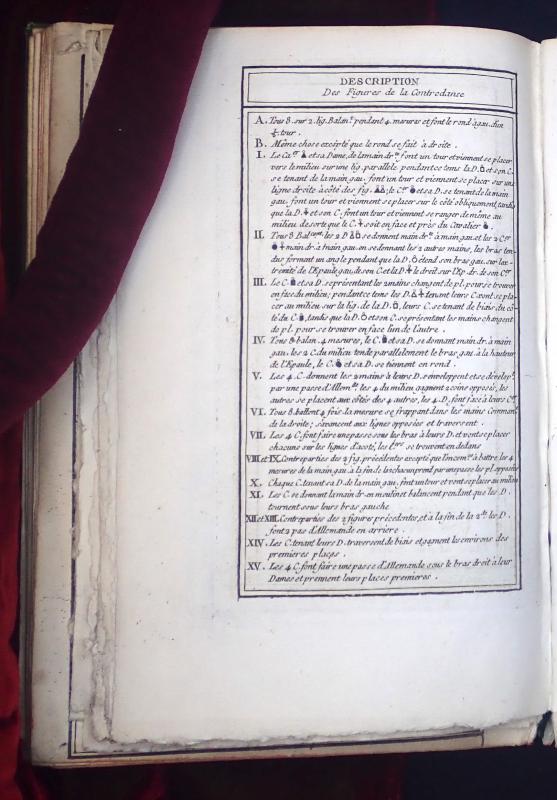 DESCRIPTION
Des Figures de la Contredanse
A. Tous 8. sur 2. lig. Balant. pendant 4. mesures et font le rond à gau. d'un
½. tour.
B. Même chose excépté que le rond se fait à droite.
I. Le Caer et sa Dame, de la main dr.e font un tour et viennent se placer
vers le milieu sur une lig. parallele pendant ce tems la D. et son C.
se tenant de la main gau. font un tour et viennent se placer sur une
ligne droite à côté des fig. ; le C.er et sa D. se tenant de la main
gau. font un tour et viennent se placer sur le côté obliquement, tandis
que la D. et son C. font un tour et viennent se ranger de même au
milieu de sorte que le C. soit en face et près du Cavalier .
II. Tous 8. Bal. les 2 D. se donnent main dr.e à main gau. et les 2 C.er
main dr. à main gau. en se donnant les 2 autres mains, les bras ten-
dus forment un angle pendant que la D. étend son bras gau. sur l'ex-
tremité de l'Epaule gau. de son C. et la D. le droit sur l'Ep. dr. de son C.er
III. Le C. et sa D. se présentant les 2 mains changent de pl. pour se trouver
en face du milieu; pendant ce tems les D. tenant leurs C. vont se pla-
cer au milieu sur la lig. de la D. , leurs C. se tenant de biais du cô-
té du C. , tandis que la D. et son C. se présentant les mains changent
de pl. pour se trouver en face l'un de l'autre.
IV. Tous 8 balan. 4 mesures, le C. et sa D. se donnant main dr. à main
gau. les 2 C. du milieu tende parallelement le bras gau. à la hauteur
de l'Epaule, le C. et sa D. se tiennent en rond.
V. Les 4. C. donnent les 2 mains à leurs D. s'enveloppent et se dévelop.t
par une passe d'Allem.de les 4 du milieu gagnent 2 coins opposés, les
autres se placent aux côtés des 4 autres, les 4. D. font face à leurs C.er
VI. Tous 8 ballent 4 fois la mesure se frappant dans les mains Commen.t
de la droite; s'avancent aux lignes opposées et traversent.
VII. Les 4 C. font faire une passe sous les bras à leurs D. et vont se placer
chacuns sur les lignes d'acoté, les C.ers se trouvent en dedans
VIII et IX. Contreparties des 2 fig. précédentes excepté que l'on com.ce à battre les 4
mesures de la main gau. à la fin de la chacun prend par une passe les pl. opposées
X. Chaque C. tenant sa D. de la main gau. font un tour et vont se placer au milieu
XI. Les C. se donnant la main dr. en moulinet balancent pendant que les D.
tournent sous leurs bras gauche
XII et XIII. Contreparties des 2 figures précedentes, et à la fin de la 2.de les D.
font 2 pas d'Allemande en arriere.
XIV. Les C. tenant leurs D. traversent de biais et gagnent les environs des
premieres places.
XV. Les 4 C. font faire une passe d'Allemande sous le bras droit à leur
Dames et prennent leurs places premieres.